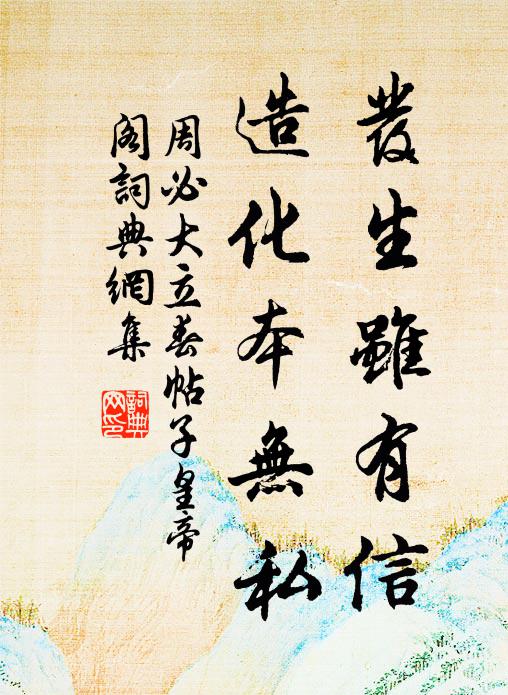 發生雖有信
造化本無私
周必大立春帖子皇帝
閣詞典網集
詞典
网印